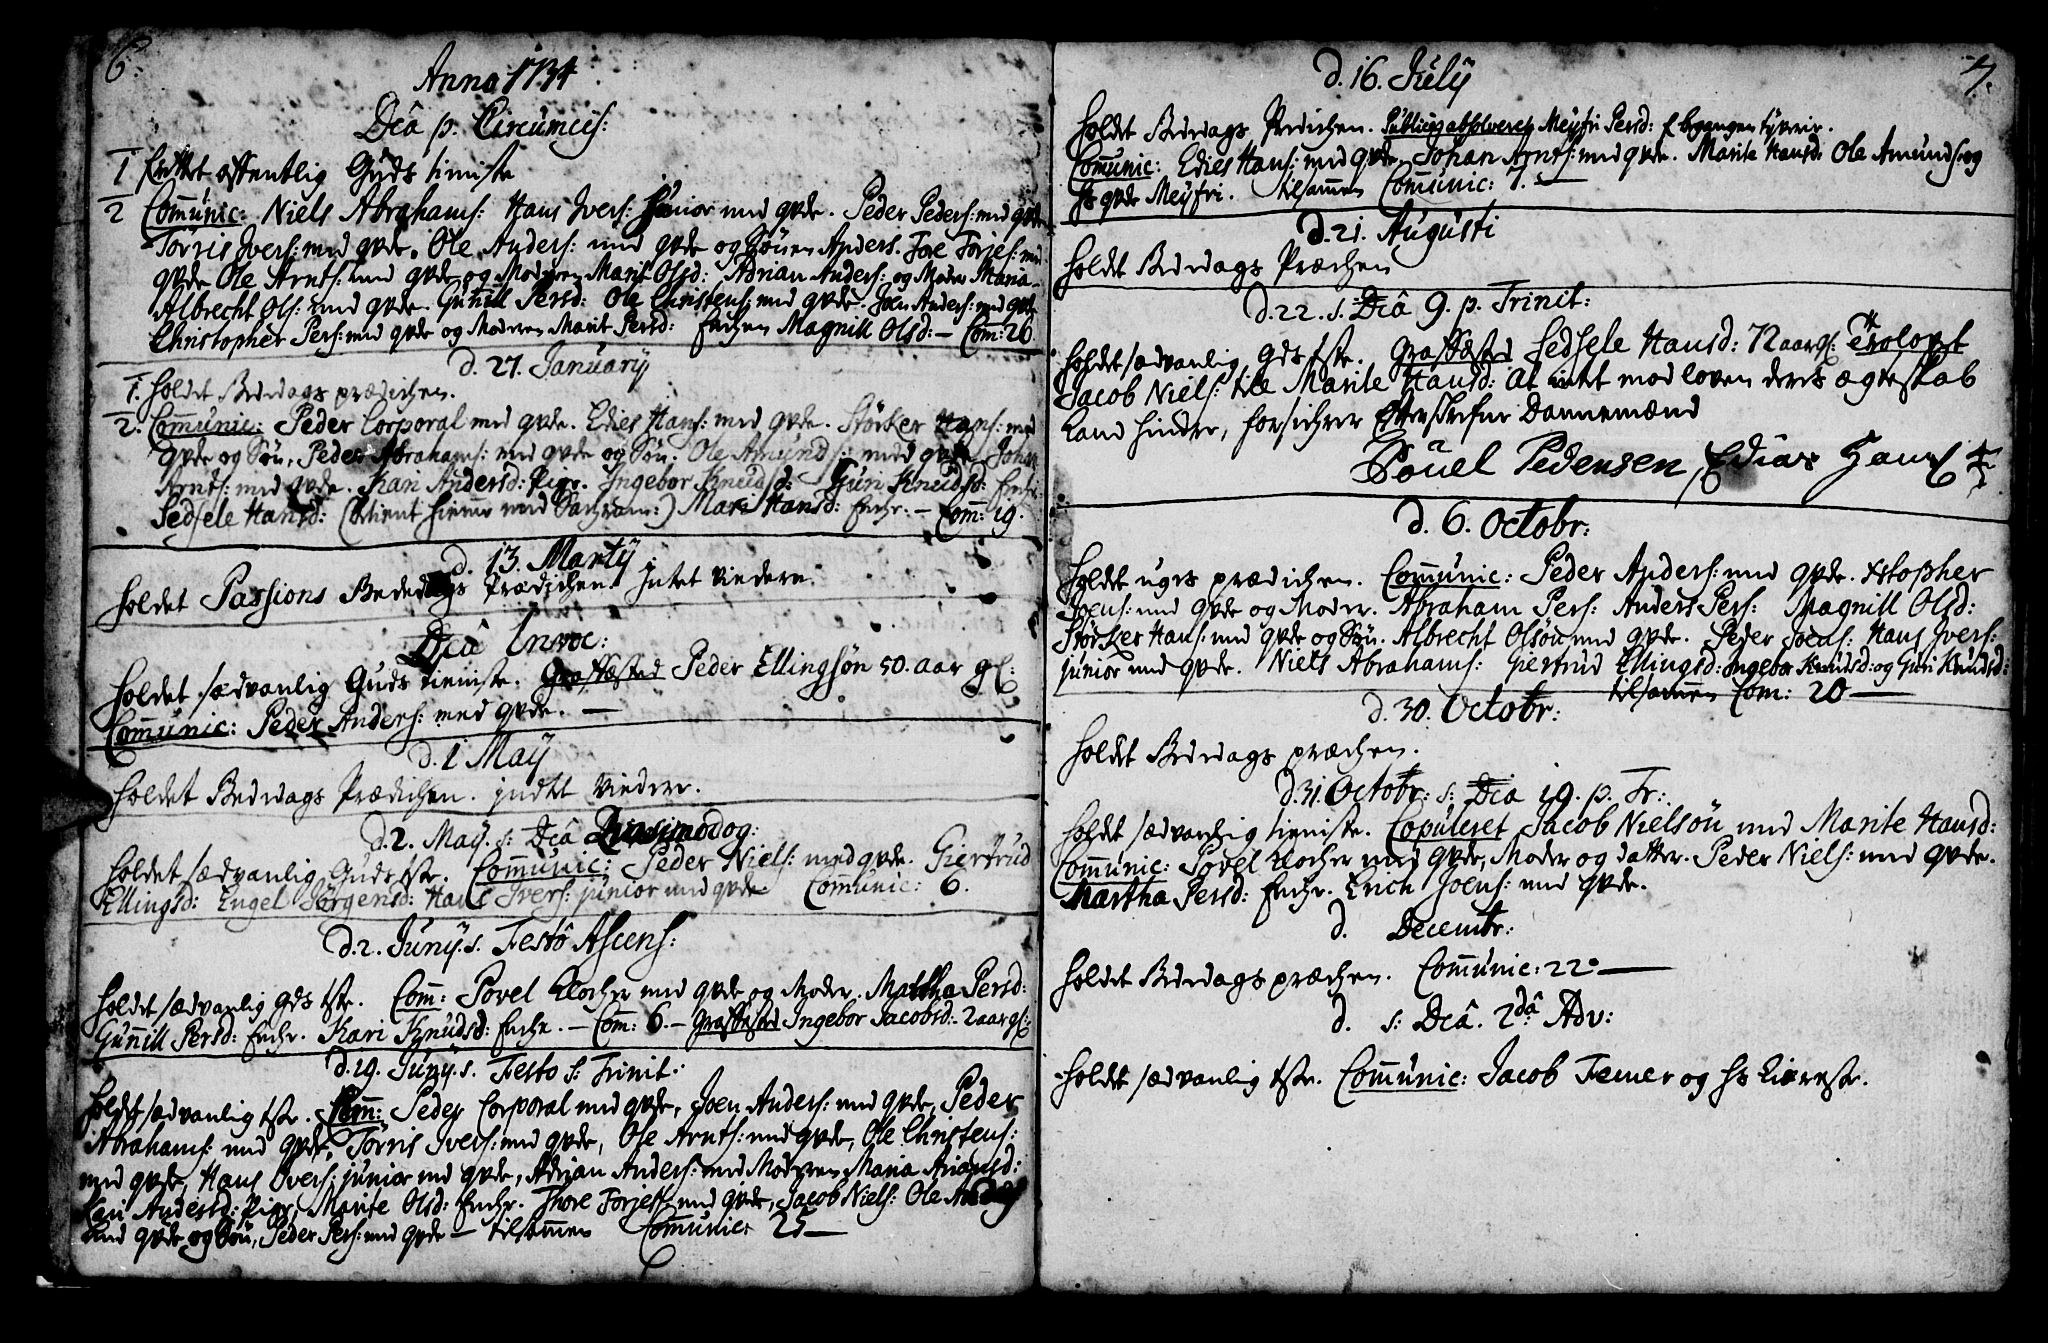 6.
Anno 1734
Dcâ p. Circumcis:
1 offentlig Guds tieniste
2 Com̅unic: Niels Abrahams: Hans Ivers: Junior med qvde. Peder Peders: med qvde
Torris Ivers: med qvde. Ole Anders: med qvde og Sönen Anders. Joe Torjes: med
qvde Ole Arnts: med qvde og Moderen Marit Olsd: Adrian Anders: og Moder Maria
Albrecht Ols: med qvde. Gunill Persd: Ole Christens: med qvde. Joen Anders: med qvde
Christopher Pers: med qvde og Moderen Marit Persd: Enchen Magnill Olsd: – Com: 26
d. 27. January
1. holdet Bededags prædichen.
2. Com̅unic: Peder Corporal med qvde. Edies Hans: med qvde. Störker Hans: med
qvde og Sön, Peder Abrahams: med qvde og Sön. Ole Amunds: med qvde Johan
Arnts: med qvde. Kari Andersd: Pige. Ingebor Knudsd: Guri Knudsd: Enche:
Sedsele Hansd: (betient hiemme med Sacram:) Mari Hansd: Enche. – Com: 19.
d. 13. Marty
holdet Passions Bededags Prædichen intet videre.
Dcâ Invoc:
holdet sædvanlig Guds tieniste. Grafæsted Peder Ellingsön 50. aar gl:
Com̅unic: Peder Anders: med qvde. —
d. 1 May
holdet Bededags Prædichen. indtet videre.
d. 2. May. s: Dcâ Quasimodog:
holdet sædvanlig Guds tste. Com̅unic: Peder Niels: med qvde. Giertrud
Ellingsd: Engel Jörgensd: Hans Ivers: junior med qvde. Com̅unic: 6.
d. 2. Juny. s. Festo Ascens:
holdet sædvanlig Gds tste. Com̅: Povel Klocher med qvde og Moder. Martha Persd:
Gunnill Persd: Enche. Kari Knudsd: Enche. – Com: 6. – Grafæsted Ingebor Jacobsd: 2 aar gl:
d. 19. Juny. s. Festo S: Trinit:
holdet sædvanlig tste. Com̅: Peder Corporal med qvde, Joen Anders: med qvde, Peder
Abrahams: med qvde, Torris Ivers: med qvde, Ole Arnts: med qvde, Ole Christens:
med qvde, Hans Ivers: junior med qvde, Adrian Anders: med Moderen Maria Ariansd:
Kari Andersd: Pige, Marite Olsd: Enche. Thore Torjes: med qvde, Jacob Niels: Ole
med qvde og Sön, Peder Pers: med qvde – tilsam̅en Com̅unic: 25 —
7.
d. 16. July
holdet Bededags Prædichen. Publicè absolveret Meyfri Persd: f. begangen tyverie.
Com̅unic: Edies Hans: med qvde, Johan Arnts: med qvde. Marite Hansd: Ole Amunds: og
hs qvde Meyfri. tilsam̅en Com̅unic: 7. —
d. 21. Augusti
holdet Bededags Præchen
d. 22. s. Dcâ 9. p. Trinit:
holdet sædvanlig Gds tste. Grafæsted Sedsele Hansd: 72 aar gl: Trolovet
Jacob Niels: til Marite Hansd: At intet mod loven deris ægteskab
kand hindre, forsichrer Dannemænd
Pouel Pedersen Edias Hans
d. 6. Octobr:
holdet uges prædichen. Com̅unic: Peder Anders: med qvde. Xstopher
Joens: med qvde og Moder. Abraham Pers: Anders Pers: Magnill Olsd:
Störker Hans: med qvde og Sön. Albrecht Olsön med qvde. Peder Joens: Hans Ivers:
junior med qvde. Niels Abrahams: Giertrud Ellingsd: Ingebor Knudsd: og Guri Knudsd:
tilsam̅en Com: 20 —
d. 30. Octobr:
holdet Bededags præchen.
d. 31. Octobr: s: Dca 19. p. Tr:
holdet sædvanlig tieniste. Copuleret Jacob Nielsön med Marite Hansd:
Com̅unic: Povel Klocher med qvde, Moder og datter. Peder Niels: med qvde.
Martha Persd: Enche. Erich Joens: med qvde.
d. Decembr:
holdet Bededags præchen. Com̅unic: 22. —
d. s: Dcâ. 2dâ Adv:
holdet sædvanlig tste. Com̅unic: Jacob Femer og hs Kiereste.